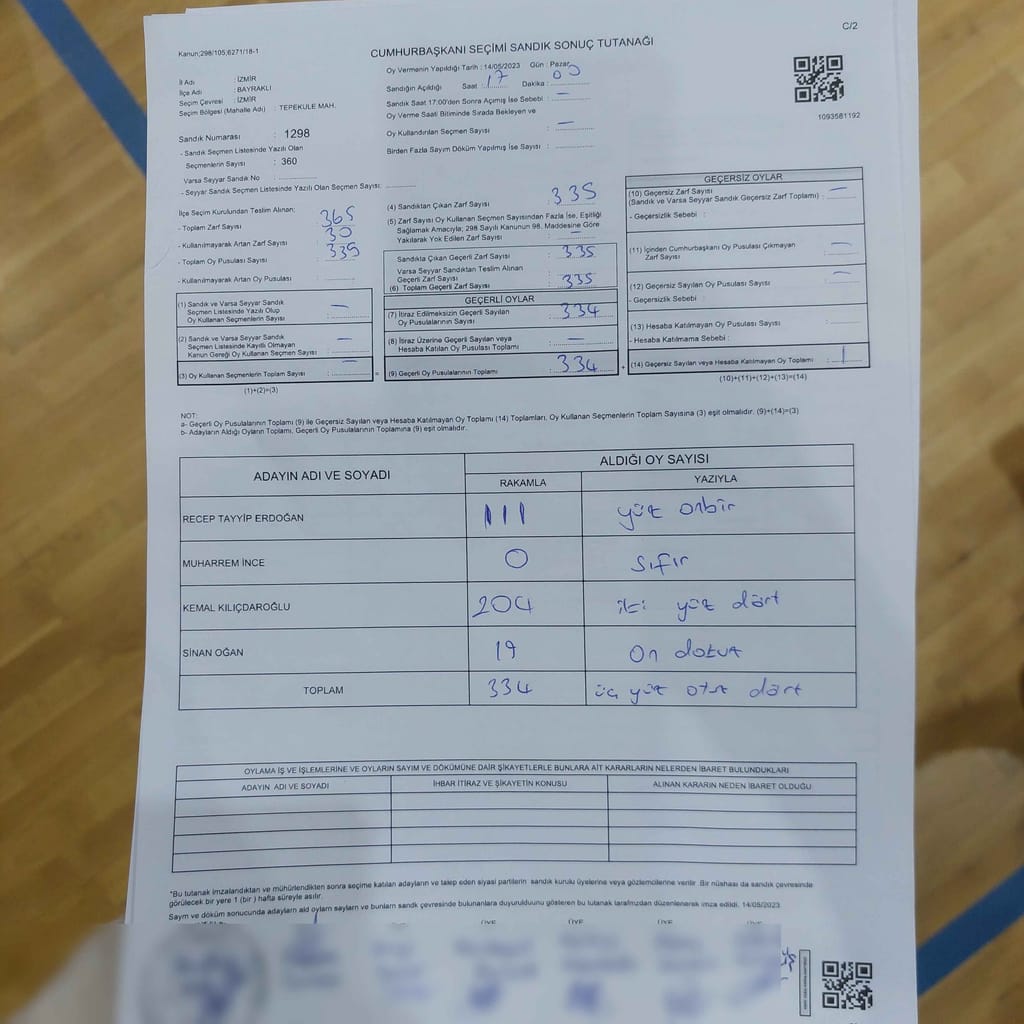 C/2
Kanun;298/105;6271/18-1
CUMHURBAŞKANI SEÇİMİ SANDIK SONUÇ TUTANAĞI
İl Adı : İZMİR
İlçe Adı : BAYRAKLI
Seçim Çevresi : İZMİR
Seçim Bölgesi (Mahalle Adı) : TEPEKULE MAH.
Sandık Numarası : 1298
- Sandık Seçmen Listesinde Yazılı Olan
Seçmenlerin Sayısı : 360
Varsa Seyyar Sandık No :
- Seyyar Sandık Seçmen Listesinde Yazılı Olan Seçmen Sayısı:
Oy Vermenin Yapıldığı Tarih : 14/05/2023 Gün : Pazar
Sandığın Açıldığı Saat : 17 Dakika : 05
Sandık Saat 17:00'den Sonra Açımış İse Sebebi : —
Oy Verme Saati Bitiminde Sırada Bekleyen ve
Oy Kullandırılan Seçmen Sayısı : —
Birden Fazla Sayım Döküm Yapılmış İse Sayısı :
1093581192
İlçe Seçim Kurulundan Teslim Alınan;
- Toplam Zarf Sayısı : 365
- Kullanılmayarak Artan Zarf Sayısı : 30
- Toplam Oy Pusulası Sayısı : 335
- Kullanılmayarak Artan Oy Pusulası :
(1) Sandık ve Varsa Seyyar Sandık
Seçmen Listesinde Yazılı Olup
Oy Kullanan Seçmenlerin Sayısı : —
(2) Sandık ve Varsa Seyyar Sandık
Seçmen Listesinde Kayıtlı Olmayan
Kanun Gereği Oy Kullanan Seçmen Sayısı : —
(3) Oy Kullanan Seçmenlerin Toplam Sayısı : —
(1)+(2)=(3)
(4) Sandıktan Çıkan Zarf Sayısı : 335
(5) Zarf Sayısı Oy Kullanan Seçmen Sayısından Fazla İse, Eşitliği
Sağlamak Amacıyla; 298 Sayılı Kanunun 98. Maddesine Göre
Yakılarak Yok Edilen Zarf Sayısı : —
Sandıkta Çıkan Geçerli Zarf Sayısı : 335
Varsa Seyyar Sandıktan Teslim Alınan
Geçerli Zarf Sayısı :
(6) Toplam Geçerli Zarf Sayısı : 335
GEÇERLİ OYLAR
(7) İtiraz Edilmeksizin Geçerli Sayılan
Oy Pusulalarının Sayısı : 334
(8) İtiraz Üzerine Geçerli Sayılan veya
Hesaba Katılan Oy Pusulası Toplamı : —
(9) Geçerli Oy Pusulalarının Toplamı : 334
GEÇERSİZ OYLAR
(10) Geçersiz Zarf Sayısı
(Sandık ve Varsa Seyyar Sandık Geçersiz Zarf Toplamı) : —
- Geçersizlik Sebebi :
(11) İçinden Cumhurbaşkanı Oy Pusulası Çıkmayan
Zarf Sayısı : —
(12) Geçersiz Sayılan Oy Pusulası Sayısı : —
- Geçersizlik Sebebi :
(13) Hesaba Katılmayan Oy Pusulası Sayısı :
- Hesaba Katılmama Sebebi :
(14) Geçersiz Sayılan veya Hesaba Katılmayan Oy Toplamı : 1
(10)+(11)+(12)+(13)=(14)
NOT:
a- Geçerli Oy Pusulalarının Toplamı (9) ile Geçersiz Sayılan veya Hesaba Katılmayan Oy Toplamı (14) Toplamları, Oy Kullanan Seçmenlerin Toplam Sayısına (3) eşit olmalıdır. (9)+(14)=(3)
b- Adayların Aldığı Oyların Toplamı, Geçerli Oy Pusulalarının Toplamına (9) eşit olmalıdır.
ADAYIN ADI VE SOYADI ALDIĞI OY SAYISI
RAKAMLA YAZIYLA
RECEP TAYYİP ERDOĞAN 111 yüz onbir
MUHARREM İNCE 0 sıfır
KEMAL KILIÇDAROĞLU 204 iki yüz dört
SİNAN OĞAN 19 on dokuz
TOPLAM 334 üç yüz otuz dört
OYLAMA İŞ VE İŞLEMLERİNE VE OYLARIN SAYIM VE DÖKÜMÜNE DAİR ŞİKAYETLERLE BUNLARA AİT KARARLARIN NELERDEN İBARET BULUNDUKLARI
ADAYIN ADI VE SOYADI İHBAR İTİRAZ VE ŞİKAYETİN KONUSU ALINAN KARARIN NEDEN İBARET OLDUĞU
*Bu tutanak imzalandıktan ve mühürlendikten sonra seçime katılan adayların ve talep eden siyasi partilerin sandık kurulu üyelerine veya gözlemcilerine verilir. Bir nüshası da sandık çevresinde
görülecek bir yere 1 (bir ) hafta süreyle asılır.
Sayım ve döküm sonucunda adayların aldı oyların sayları ve bunların sandk çevresinde bulunanlara duyurulduunu gösteren bu tutanak tarafmzdan düzenlenerek imza edildi. 14/05/2023
ÜYE ÜYE ÜYE ÜYE